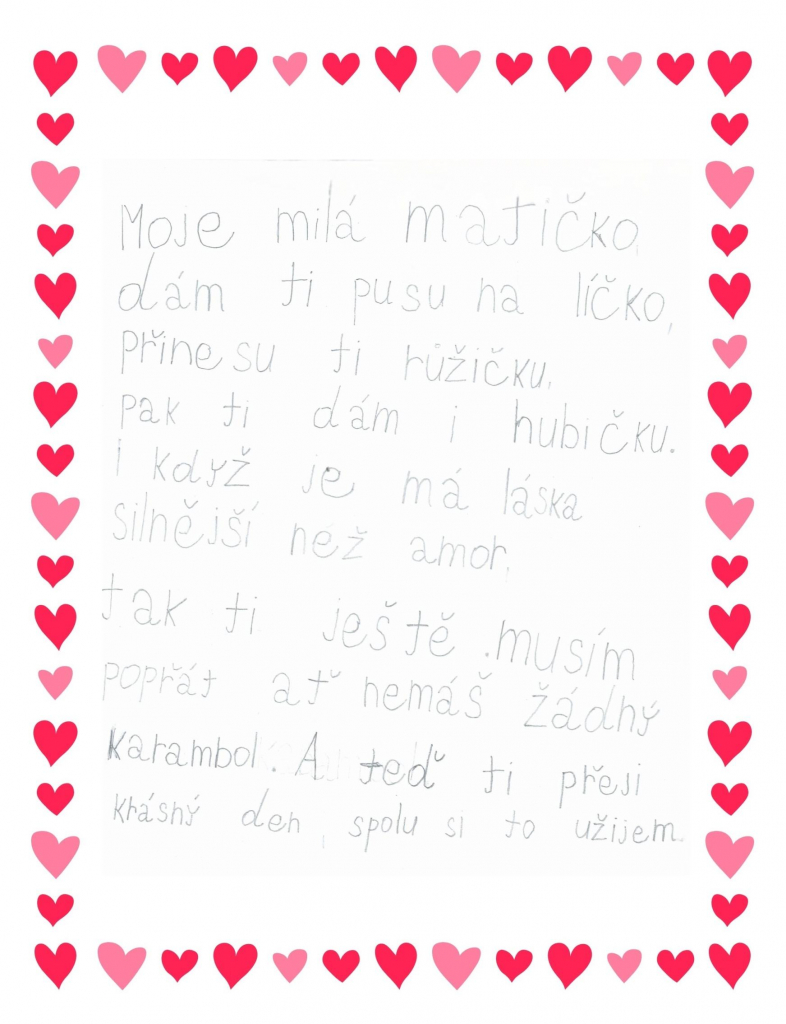 Moje milá matičko,
dám ti pusu na líčko,
přinesu ti růžičku,
pak ti dám i hubičku.
I když je má láska
silnější než amor,
tak ti ještě musím
popřát ať nemáš žádný
karambol. A teď ti přeji
krásný den, spolu si to užijem.